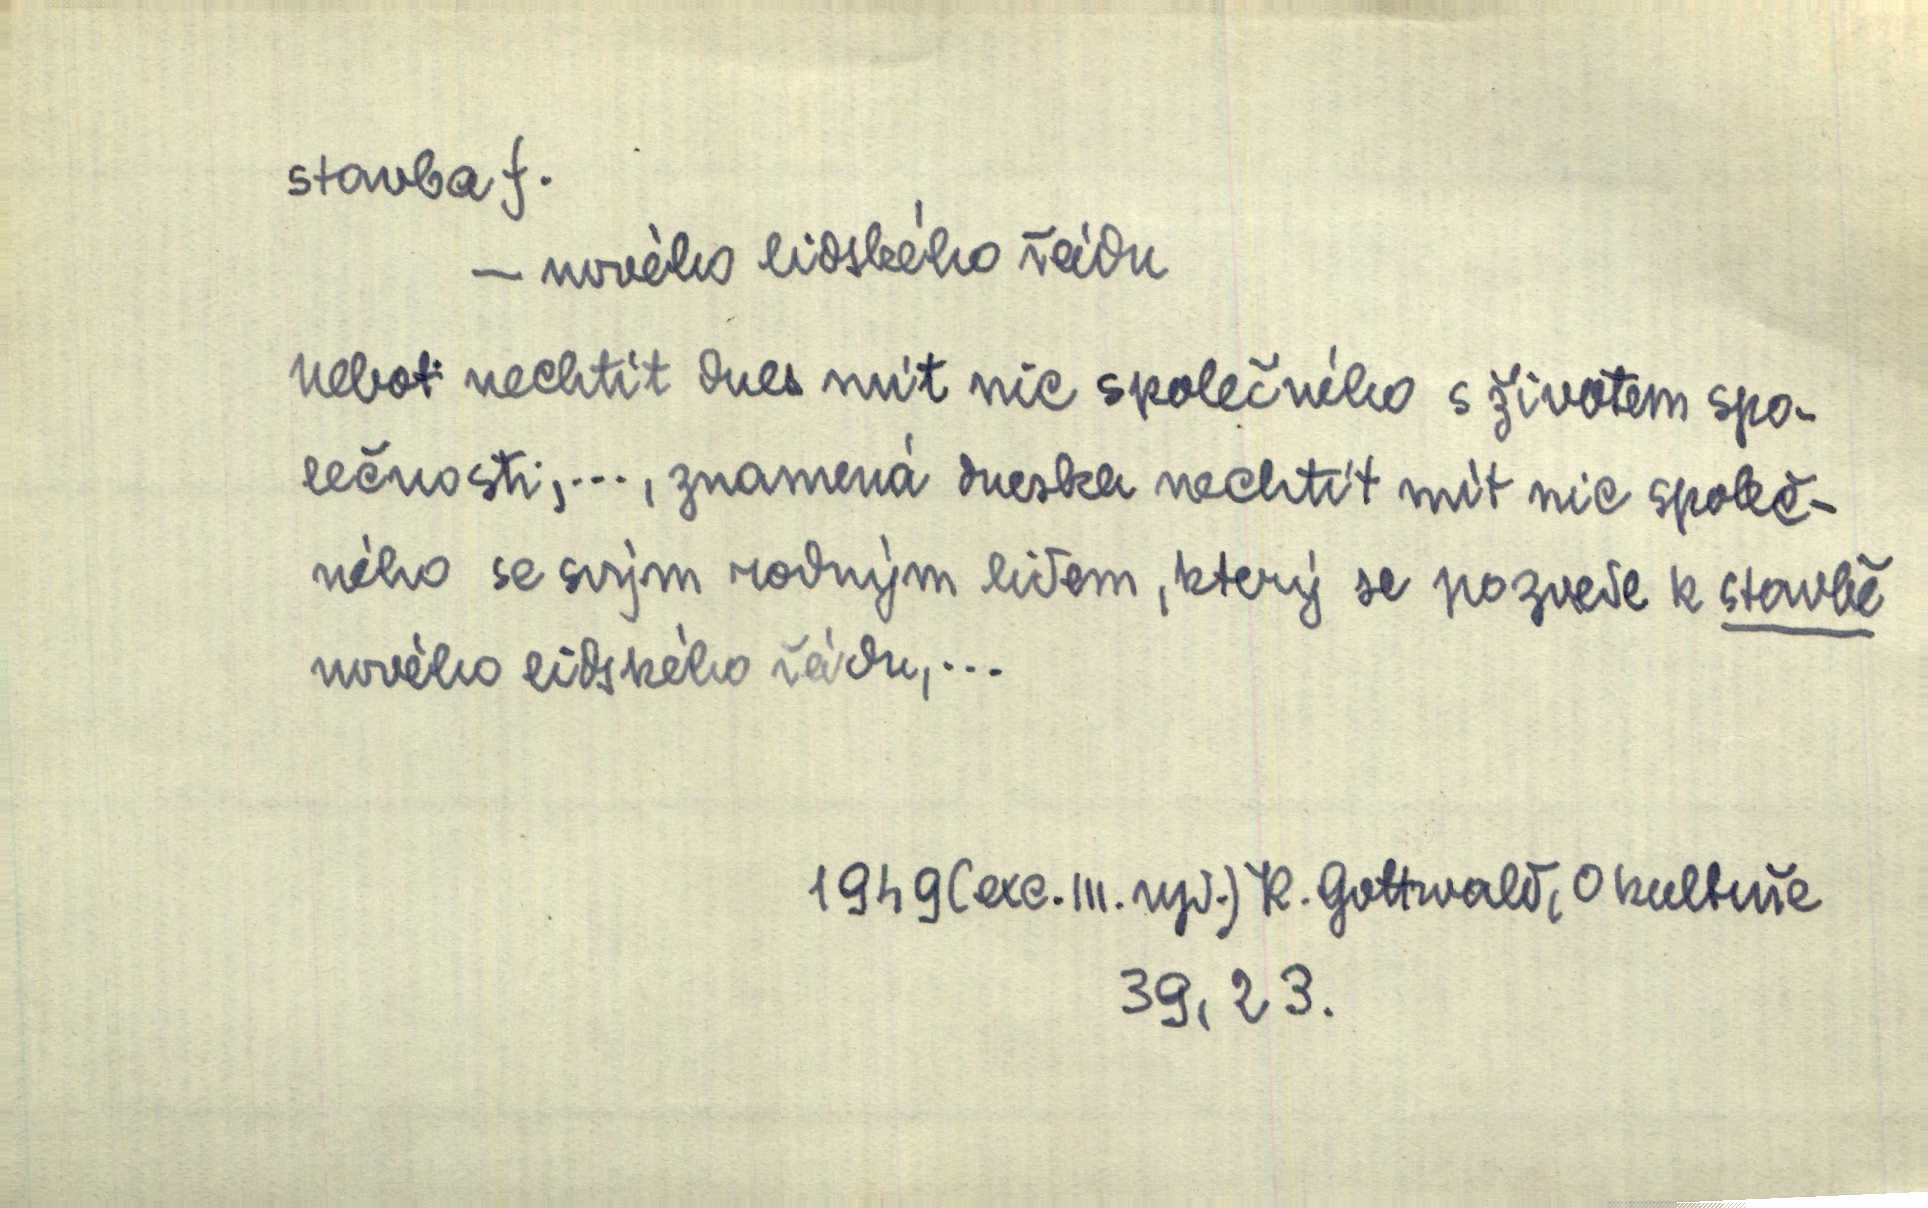 stavba f.
— nového lidského řádu
Neboť nechtít dnes mít nic společného s životem spo-
lečnosti,..., znamená dneska nechtít mít nic společ-
ného se svým rodným lidem, který se pozvedl k stavbě
nového lidského řádu,...
1949 (exc. III. vyd.) K. Gottwald, O kultuře
39, 23.